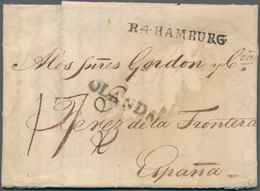 R.4. HAMBURG.
A los Sñres Gordon y Cia
OLANDA
Xerez de la Frontera
España